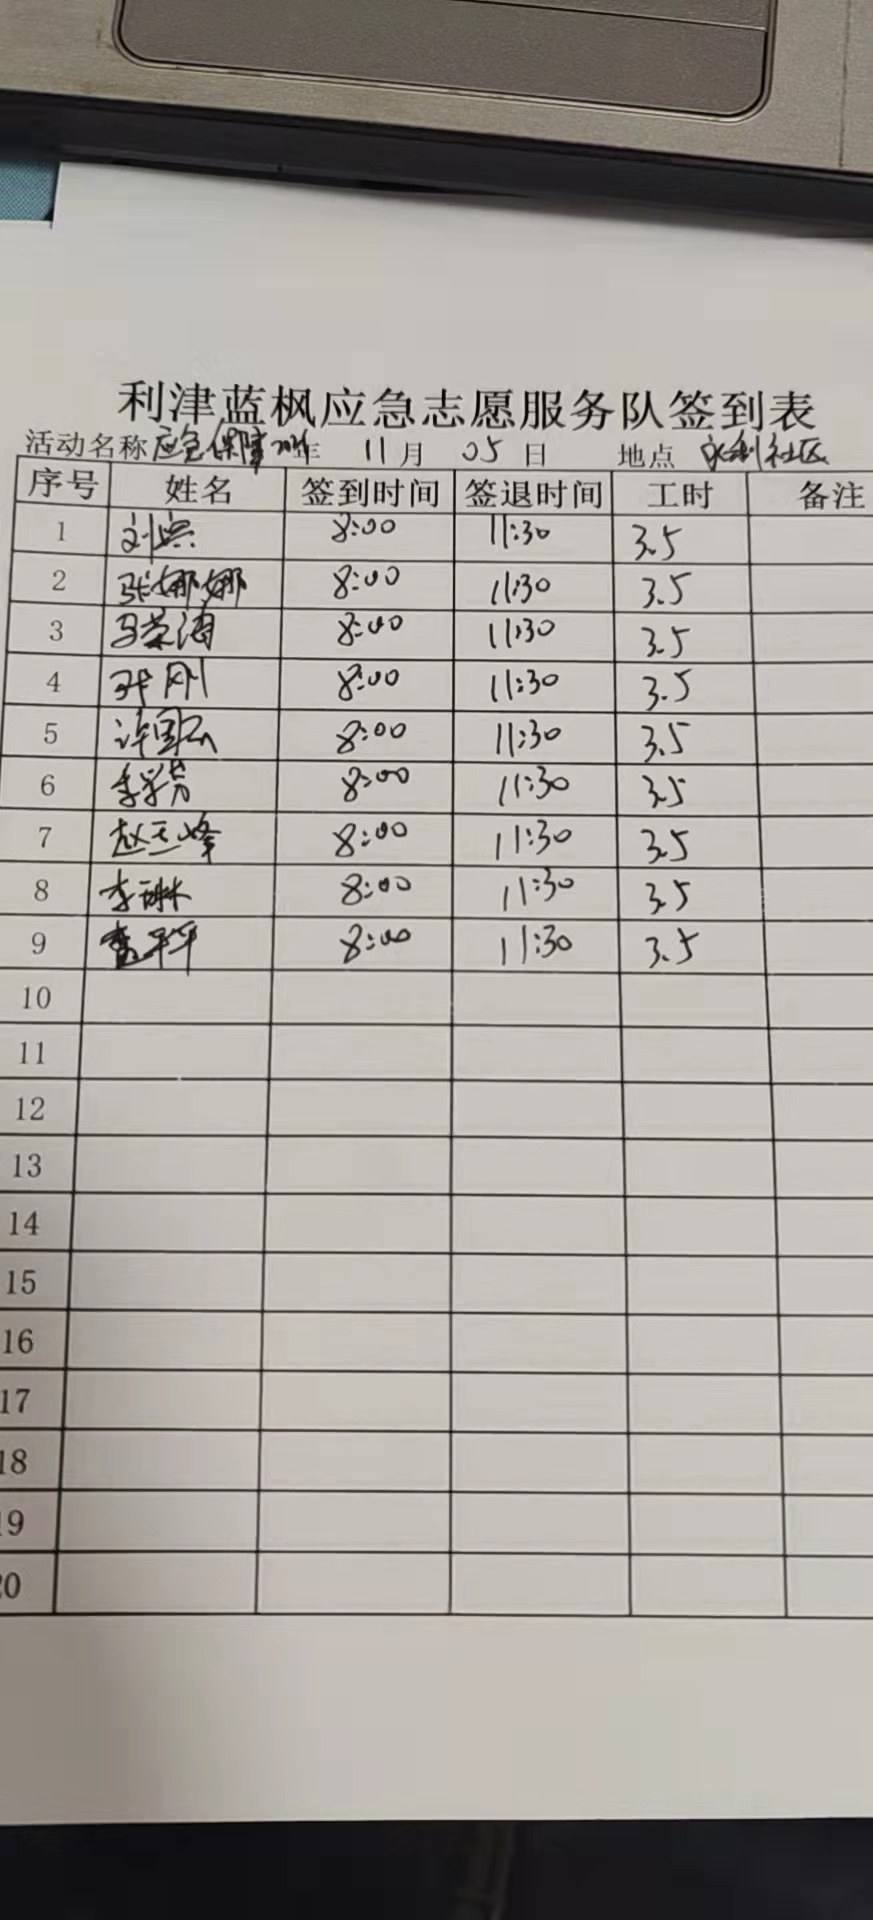 利津蓝枫应急志愿服务队签到表
活动名称 应急保障 年 11月 05日 地点 永利社区
序号 姓名 签到时间 签退时间 工时 备注
1 8:00 11:30 3.5
2 张娜娜 8:00 11:30 3.5
3 马荣海 8:00 11:30 3.5
4 张刚 8:00 11:30 3.5
5 8:00 11:30 3.5
6 8:00 11:30 3.5
7 赵玉峰 8:00 11:30 3.5
8 李琳 8:00 11:30 3.5
9 8:00 11:30 3.5
10
11
12
13
14
15
16
17
18
19
20